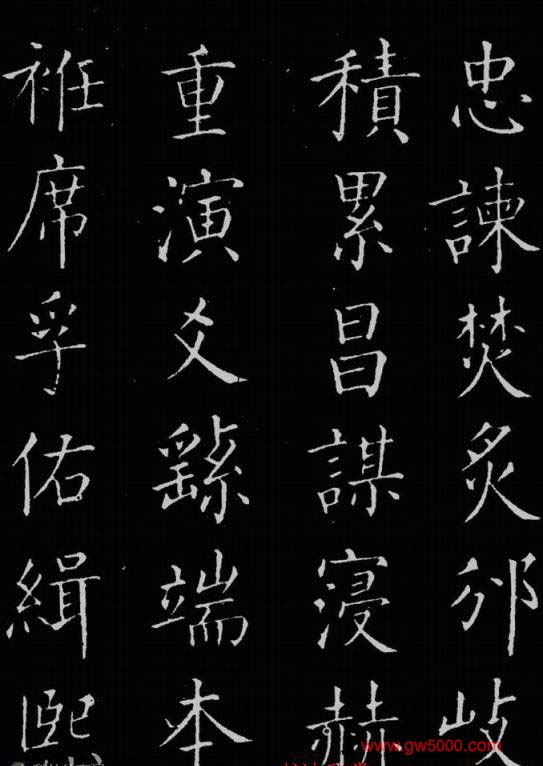 忠諫焚炙邠岐
積累昌謀寖赫
重演爻繇端本
袵席孚佑緝熙
www.gw5000.com